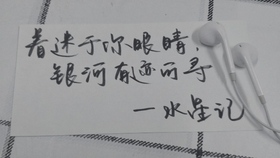 着迷于你眼睛,
银河有迹可寻
—水星记